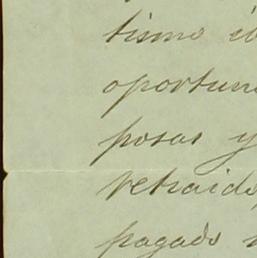 tismo
oportun
posas y
retraido
pagado